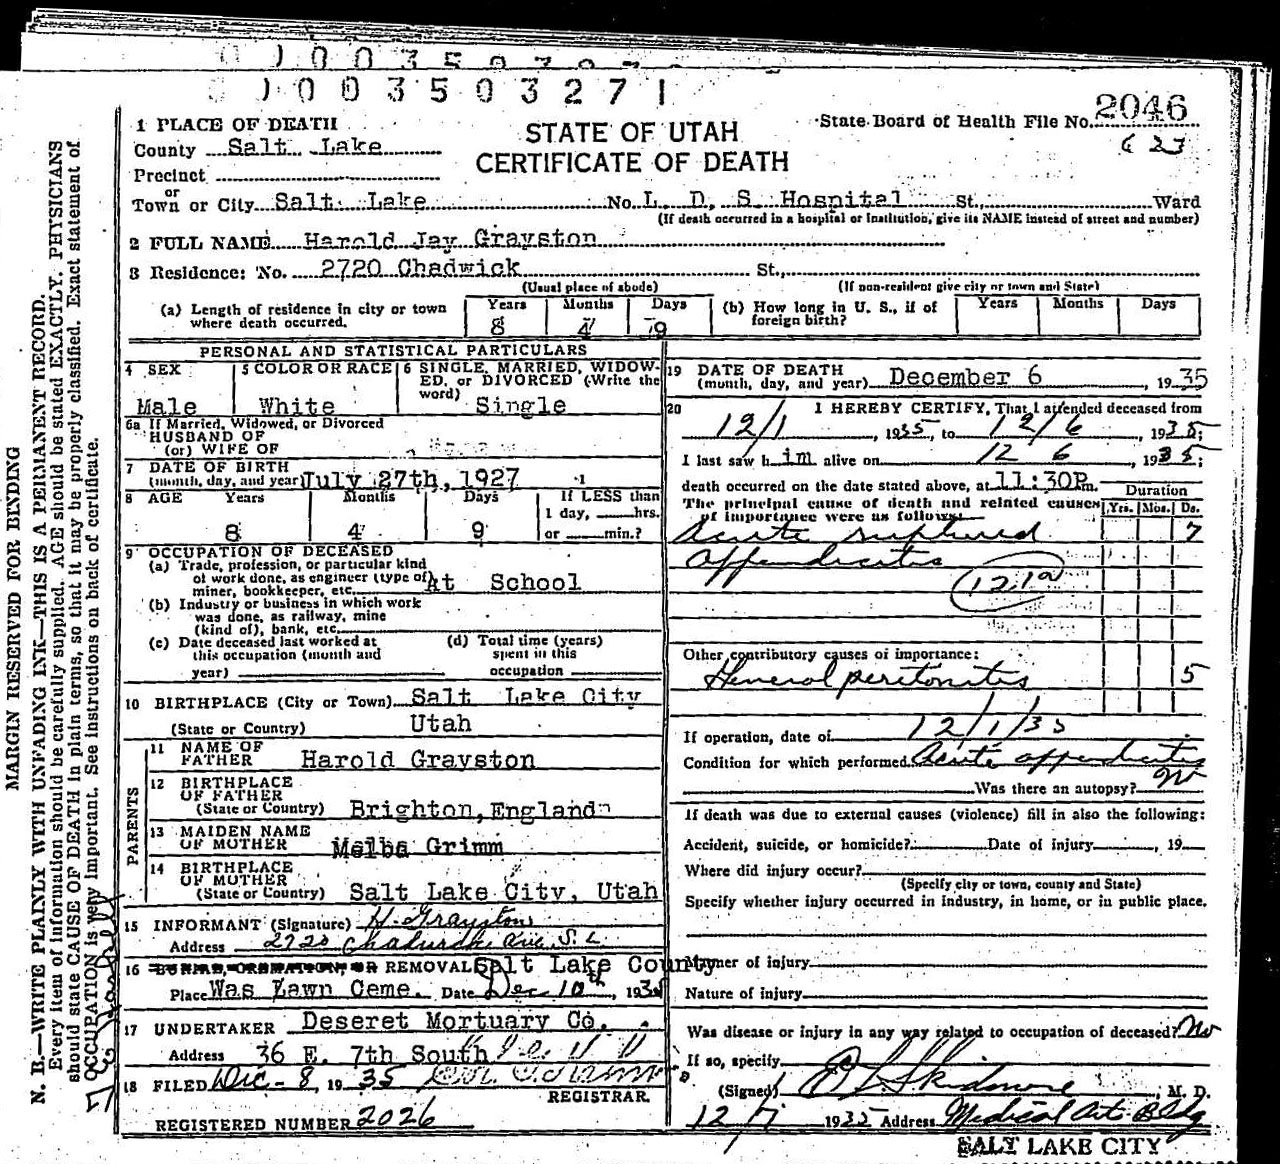 0 0 3 5 0 3 2 7 1
2046
6 23
STATE OF UTAH
CERTIFICATE OF DEATH
State Board of Health File No.
1 PLACE OF DEATH
County Salt Lake
Precinct
or
Town or City Salt Lake No. L. D. S. Hospital St., Ward
(If death occurred in a hospital or institution, give its NAME instead of street and number)
2 FULL NAME Harold Jay Grayston
3 Residence: No. 2720 Chadwick St.,
(Usual place of abode) (If non-resident give city or town and State)
(a) Length of residence in city or town where death occurred. Years 8 Months 4 Days 9
(b) How long in U. S., if of foreign birth? Years Months Days
PERSONAL AND STATISTICAL PARTICULARS
4 SEX
Male
5 COLOR OR RACE
White
6 SINGLE, MARRIED, WIDOWED, or DIVORCED (Write the word)
Single
6a If Married, Widowed, or Divorced
HUSBAND OF
(or) WIFE OF
7 DATE OF BIRTH
(month, day, and year) July 27th, 1927
8 AGE Years Months Days If LESS than
1 day, hrs.
8 4 9 or min.?
9 OCCUPATION OF DECEASED
(a) Trade, profession, or particular kind
of work done, as engineer (type of
miner, bookkeeper, etc. At School
(b) Industry or business in which work
was done, as railway, mine
(kind of), bank, etc.
(c) Date deceased last worked at
this occupation (month and
year)
(d) Total time (years)
spent in this
occupation
10 BIRTHPLACE (City or Town) Salt Lake City
(State or Country) Utah
PARENTS
11 NAME OF
FATHER Harold Grayston
12 BIRTHPLACE
OF FATHER
(State or Country) Brighton, England
13 MAIDEN NAME
OF MOTHER Melba Grimm
14 BIRTHPLACE
OF MOTHER
(State or Country) Salt Lake City, Utah
15 INFORMANT (Signature) H. Grayston
Address 2720 Chadwick Ave. S. L.
16 BURIAL, CREMATION, OR REMOVAL Salt Lake County
Place Was Lawn Ceme. Date Dec 10th, 1935
17 UNDERTAKER Deseret Mortuary Co.
Address 36 E. 7th South
18 FILED Dec - 8, 1935
REGISTRAR.
REGISTERED NUMBER 2026
19 DATE OF DEATH
(month, day, and year) December 6, 1935
20 I HEREBY CERTIFY, That I attended deceased from
12/1, 1935, to 12/6, 1935;
I last saw him alive on 12 6, 1935;
death occurred on the date stated above, at 11:30P.m.
The principal cause of death and related causes
of importance were as follows:
Duration
Yrs. Mos. Ds.
Acute ruptured 7
appendicitis
121a
Other contributory causes of importance:
General peritonitis 5
If operation, date of 12/1/35
Condition for which performed Acute appendicitis
Was there an autopsy? No
If death was due to external causes (violence) fill in also the following:
Accident, suicide, or homicide? Date of injury, 19
Where did injury occur?
(Specify city or town, county and State)
Specify whether injury occurred in industry, in home, or in public place.
Manner of injury
Nature of injury
Was disease or injury in any way related to occupation of deceased? No
If so, specify
(Signed) Skidmore, M. D.
12/7 1935 Address Medical Art Bldg
SALT LAKE CITY
MARGIN RESERVED FOR BINDING
N. B.—WRITE PLAINLY WITH UNFADING INK—THIS IS A PERMANENT RECORD.
Every item of information should be carefully supplied. AGE should be stated EXACTLY. PHYSICIANS
should state CAUSE OF DEATH in plain terms, so that it may be properly classified. Exact statement of
OCCUPATION is very important. See instructions on back of certificate.